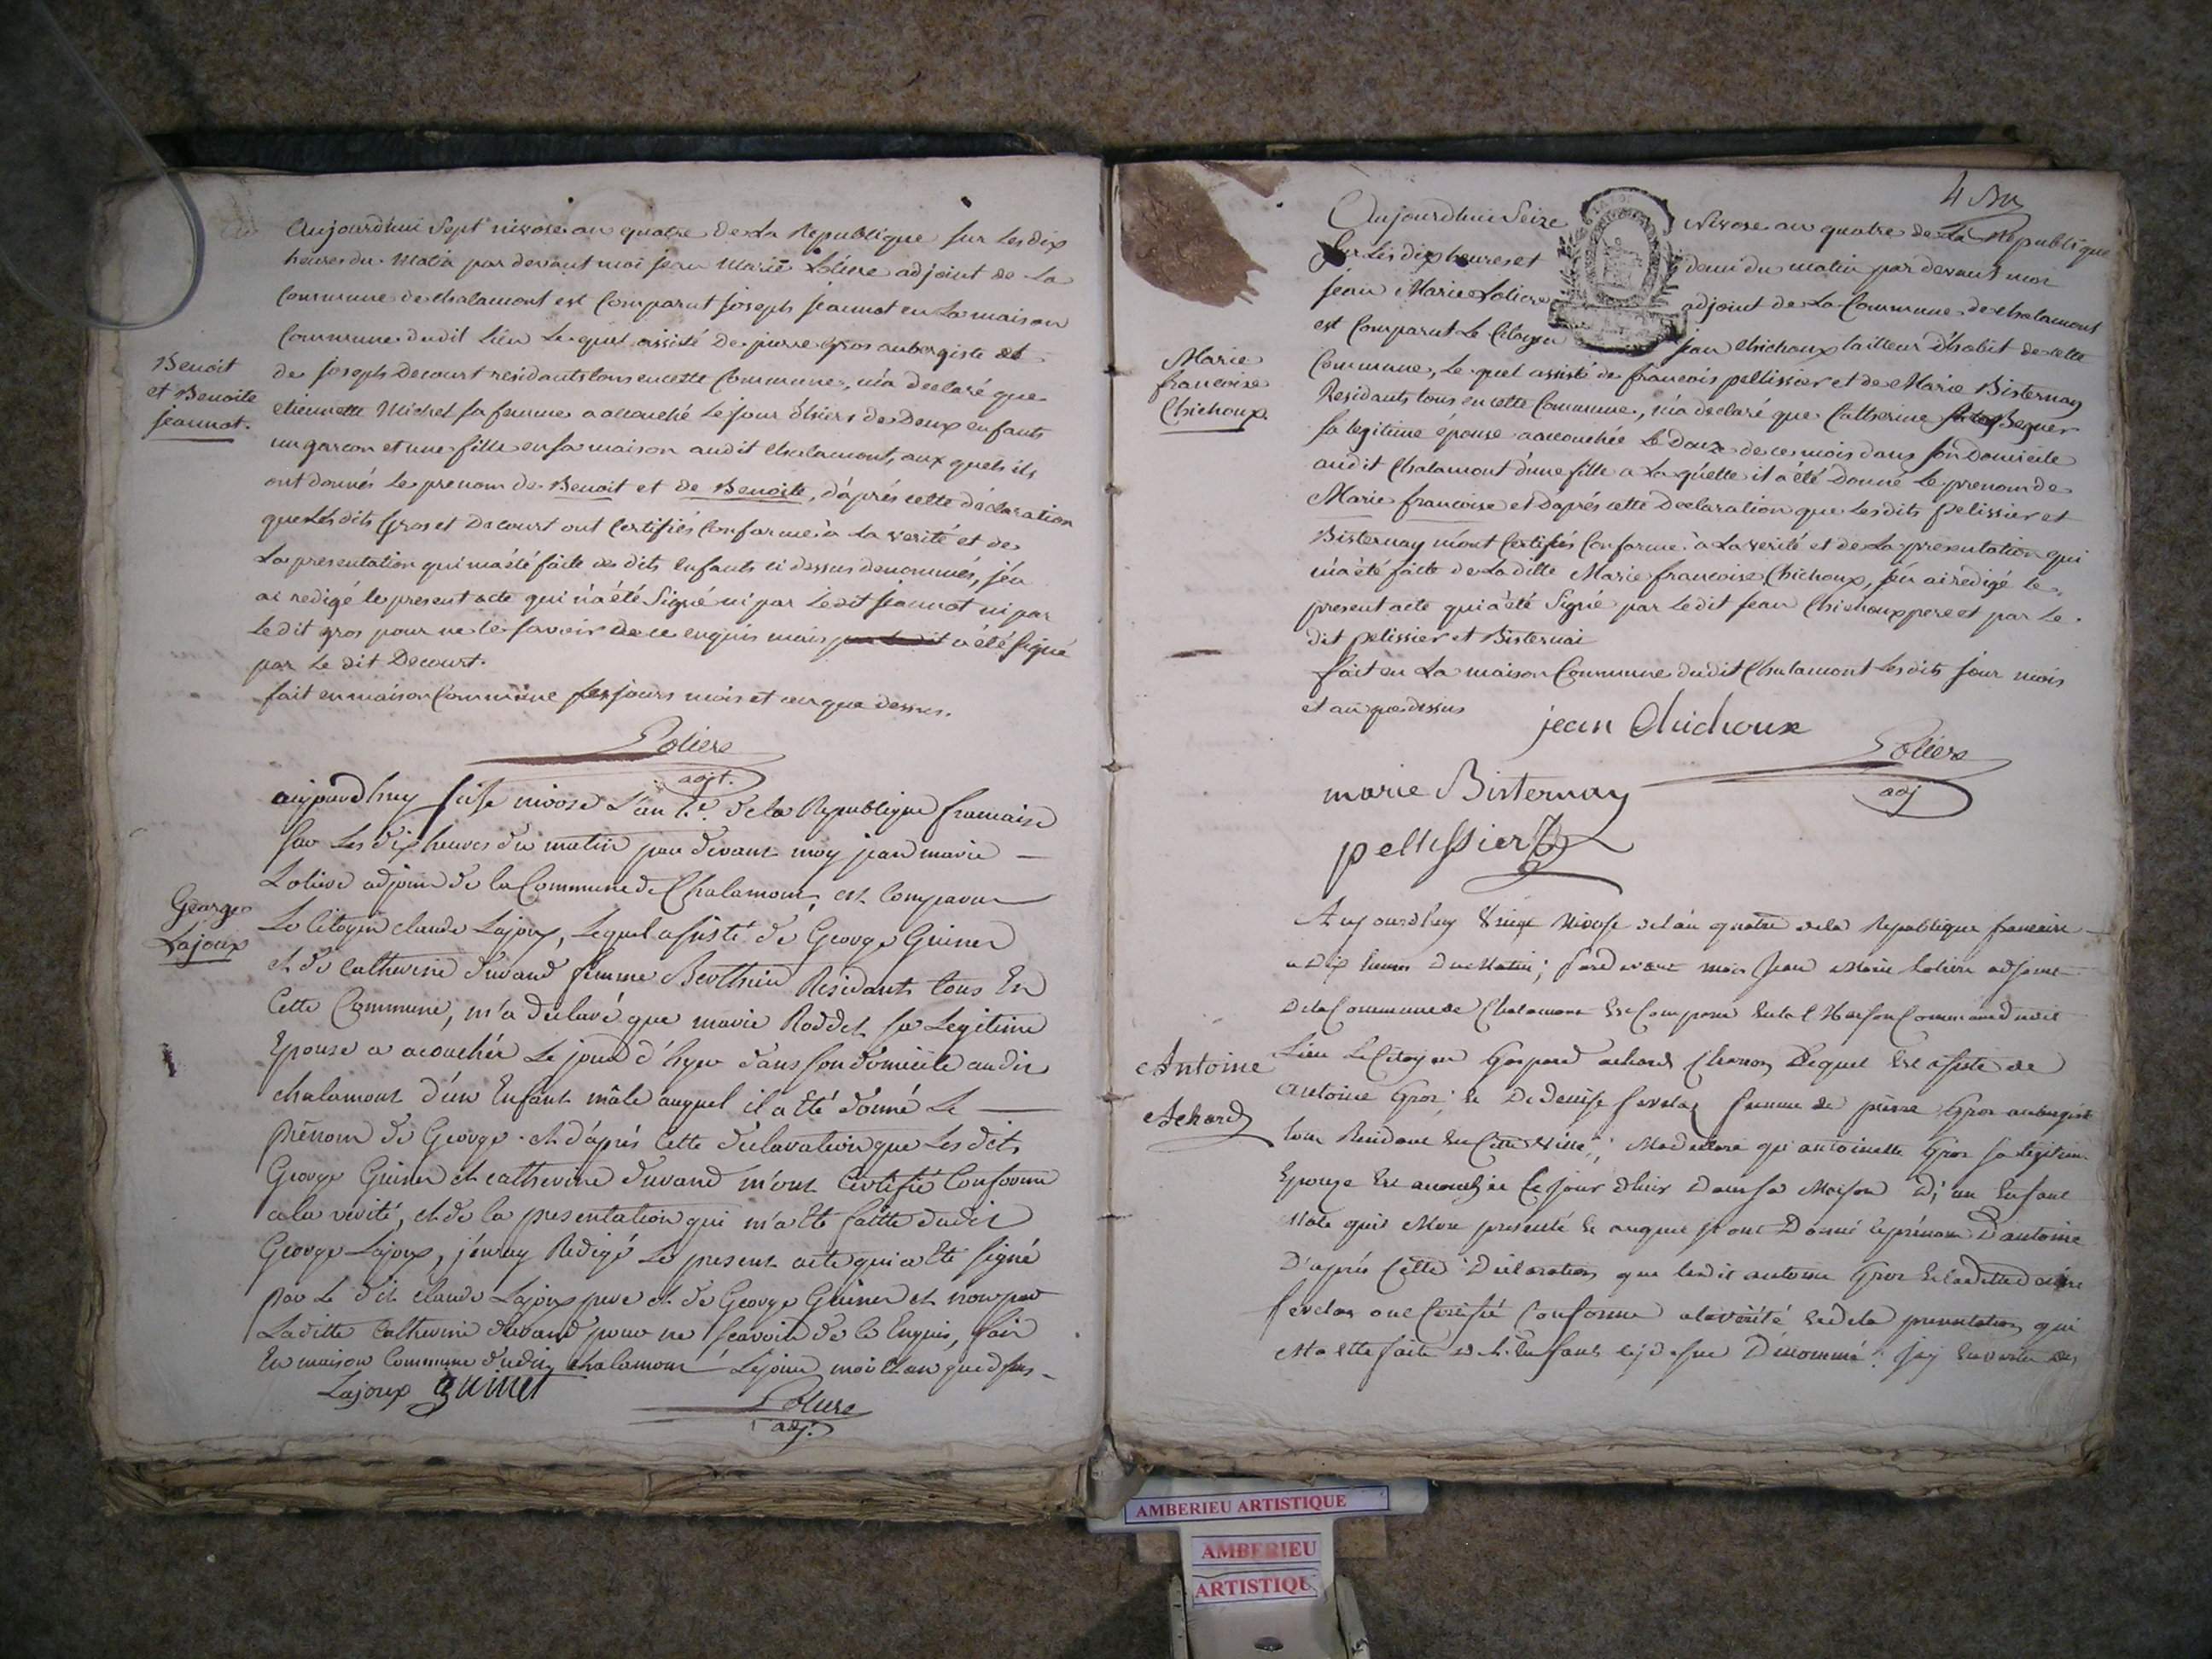 Aujourdhui Sept nivose an quatre de La Republique sur Les dix
heures du Matin par devant moi Jean Marie Loliere adjoint de La
Commune de Chalamont est Comparut Joseph Jeannot en La maison
Commune dudit Lieu Lequel assisté de pierre gros aubergiste et
de Joseph Decourt residants tous en cette Commune, m'a declaré que
etiennette Michel sa femme a accouché Le jour d'hiers de Deux enfants
un garcon et une fille en sa maison audit Chalamont, aux quels ils
ont donnés Le prenom de Benoit et de Benoite, d'aprés cette déclaration
que Les dits Gros et Decourt ont Certifiés Conforme à La verité et de
La presentation qui m'a été faite des dits enfants ci dessus denommés, j'en
ai redigé le present acte qui n'a été Signé ni par Ledit Jeannot ni par
Le dit gros pour ne le savoir de ce enquis mais par Ledit a été signé
par Le dit Decourt.
fait en maison Commune Les jours mois et an que dessus.
Benoit
et Benoite
Jeannot.
Loliere
adjt.
aujourdhuy seise nivose L'an 4e. de la Republique francaise
sur Les dix heures du matin par devant moy jean marie
Loliere adjoint de la Commune de Chalamont, est Comparu
Le Citoyen claude Lajoux, Lequel assisté de George Guinet
et de Catherine durand femme Berthier Residants tous En
Cette Commune, m'a declaré que marie Roddet sa Legitime
Epouse a acouchée Le jour d'hyer dans son domicile audit
chalamont d'un Enfant mâle auquel il a Eté donné Le
prénom de George. et d'aprés Cette declaration que Les dits
George Guinet et catherine durand m'ont Certifié Conforme
a la verité, et de la presentation qui m'a Eté faitte dudit
George Lajoux, j'en ay Redigé Le present acte qui a Eté signé
par Le dit claude Lajoux pere et de George Guinet et non par
Laditte Catherine durand pour ne sçavoir de ce Enquis, fait
En maison Commune dudit chalamont Le jour, mois et an que dessus
George
Lajoux
Lajoux guinet
Loliere
adj.
4
Aujourdhui Seize nivose an quatre de La Republique
Sur Les dix heures et demi du matin par devant moi
Jean Marie Loliere adjoint de La Commune de Chalamont
est Comparut Le Citoyen Jean Chichoux tailleur d'habit de cette
Commune, Lequel assisté de francois pellissier et de Marie Bisternay
Residants tous en cette Commune, m'a declaré que Catherine Beguer
sa legitime épouse a accouchée Le douze de ce mois dans son Domicile
audit Chalamont d'une fille a La quelle il a été Donné Le prenom de
Marie francoise et d'aprés cette Declaration que Les dits Pelissier et
Bisternay m'ont Certifiés Conforme à La verité et de La presentation qui
m'a été faite de La ditte Marie francoise Chichoux, j'en ai rédigé le
present acte qui a été Signé par Le dit Jean Chichoux pere et par Le
dit pelissier et Bisternai
fait en La maison Commune dudit Chalamont Les dits jour mois
et an que dessus
Marie
francoise
Chichoux
jean Chichoux
Loliere
adj
marie Bisternay
pellissier
Aujourdhuy Nivosse de l'an quatre de la Republique francaise
a Dix heures Du Matin; par devant moi Jean Marie Loliere adjoint
De la Commune de Chalamont Est Comparu En la Maison Commune dudit
Lieu Le Citoyen Gaspard achard Charron Lequel Est assisté de
antoine Gros; et De Denise femme de pierre Gros aubergiste
tous Residant En Cette Ville; Ma declaré que antoinette Gros sa legitime
Epouze Est acouchée Le jour d'hier Dans sa Maison D'un Enfant
Male qu'il Mont presenté et auquel ils ont Donné le prénom D'antoine
D'aprés Cette Declaration que Ledit antoine Gros Et laditte denise
ont Certifié Conforme a la vérité Et de la presentation qui
Ma ette faite de L. Enfant Dénommé: Jay En vertu des
Antoine
Achard
AMBERIEU ARTISTIQUE
AMBERIEU
ARTISTIQUE